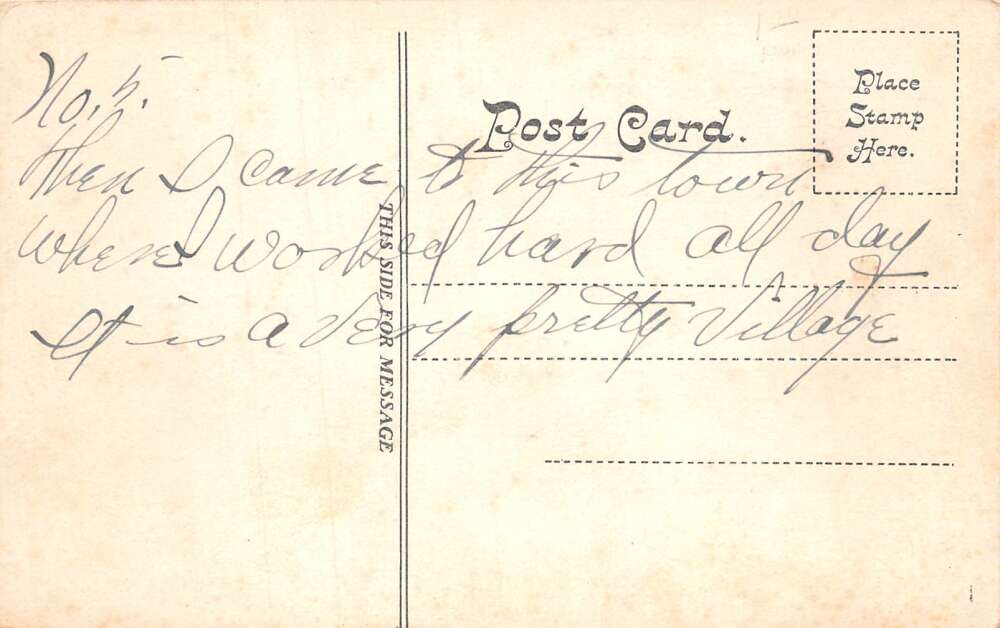 No. 5.
Then I came to this town
where I worked hard all day
It is a very pretty Village
Post Card.
Place
Stamp
Here.
THIS SIDE FOR MESSAGE